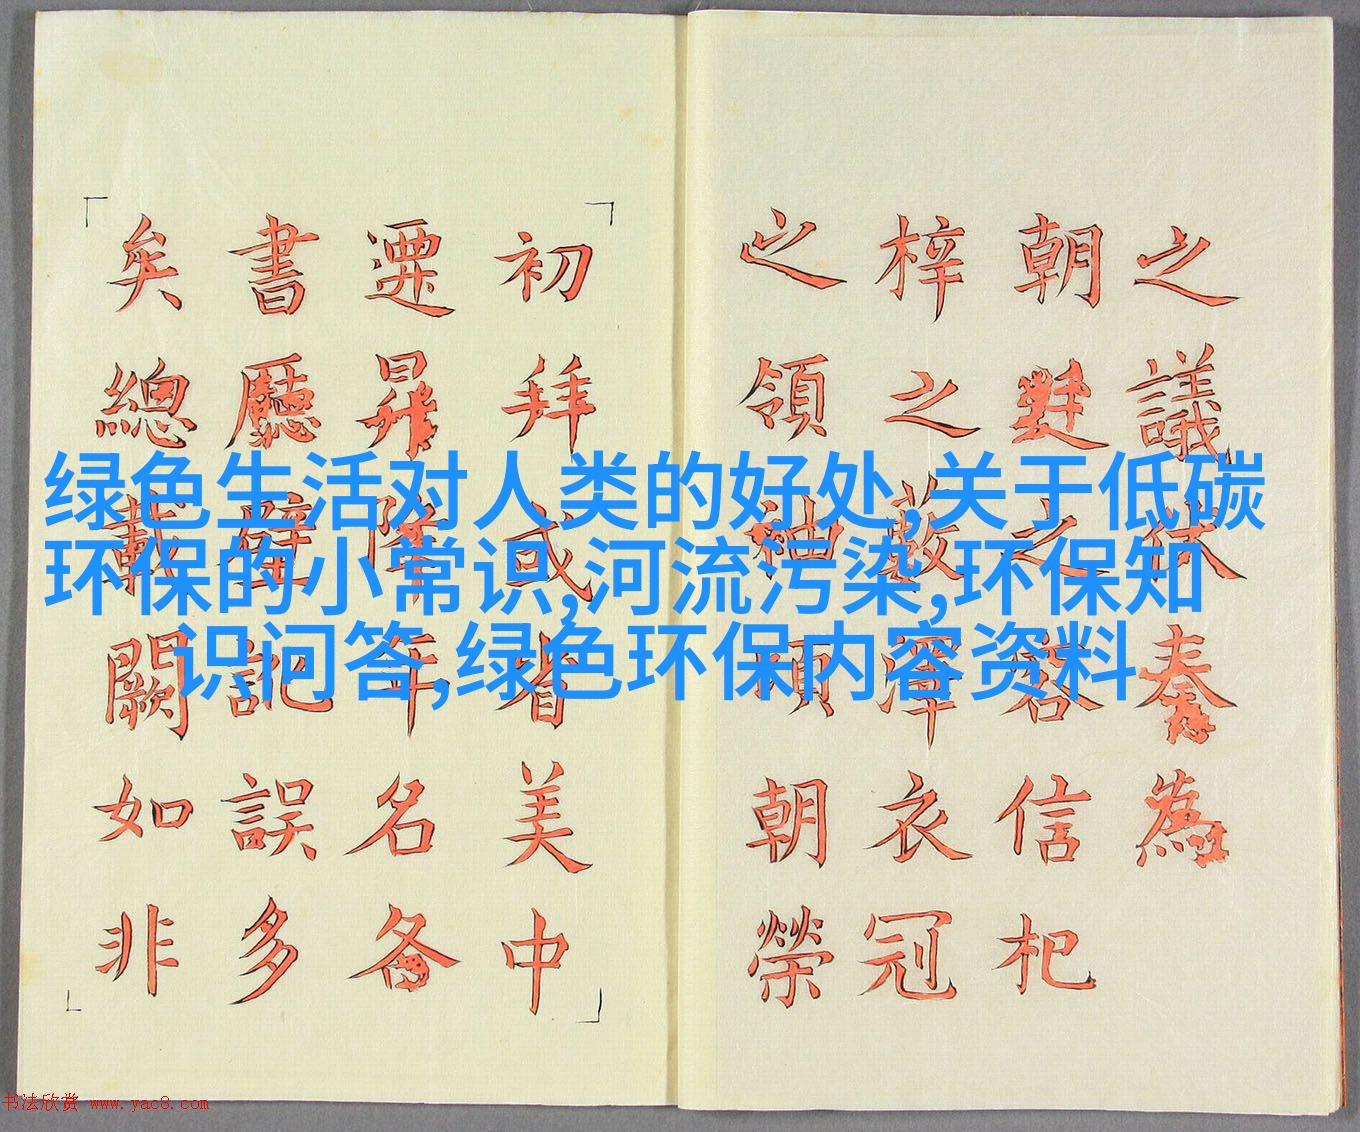 绿色生活对人类的好处,关于低碳
环保的小常识,河流污染,环保知
识问答,绿色环保内容资料
之議休奏為
朝之信杞
梓之薮澤衣冠
之領袖頃朝榮
初拜或省美中
遷昇降年名各
書廳壁記誤多
矣總載闕如非
书法欣赏 www.yac8.com